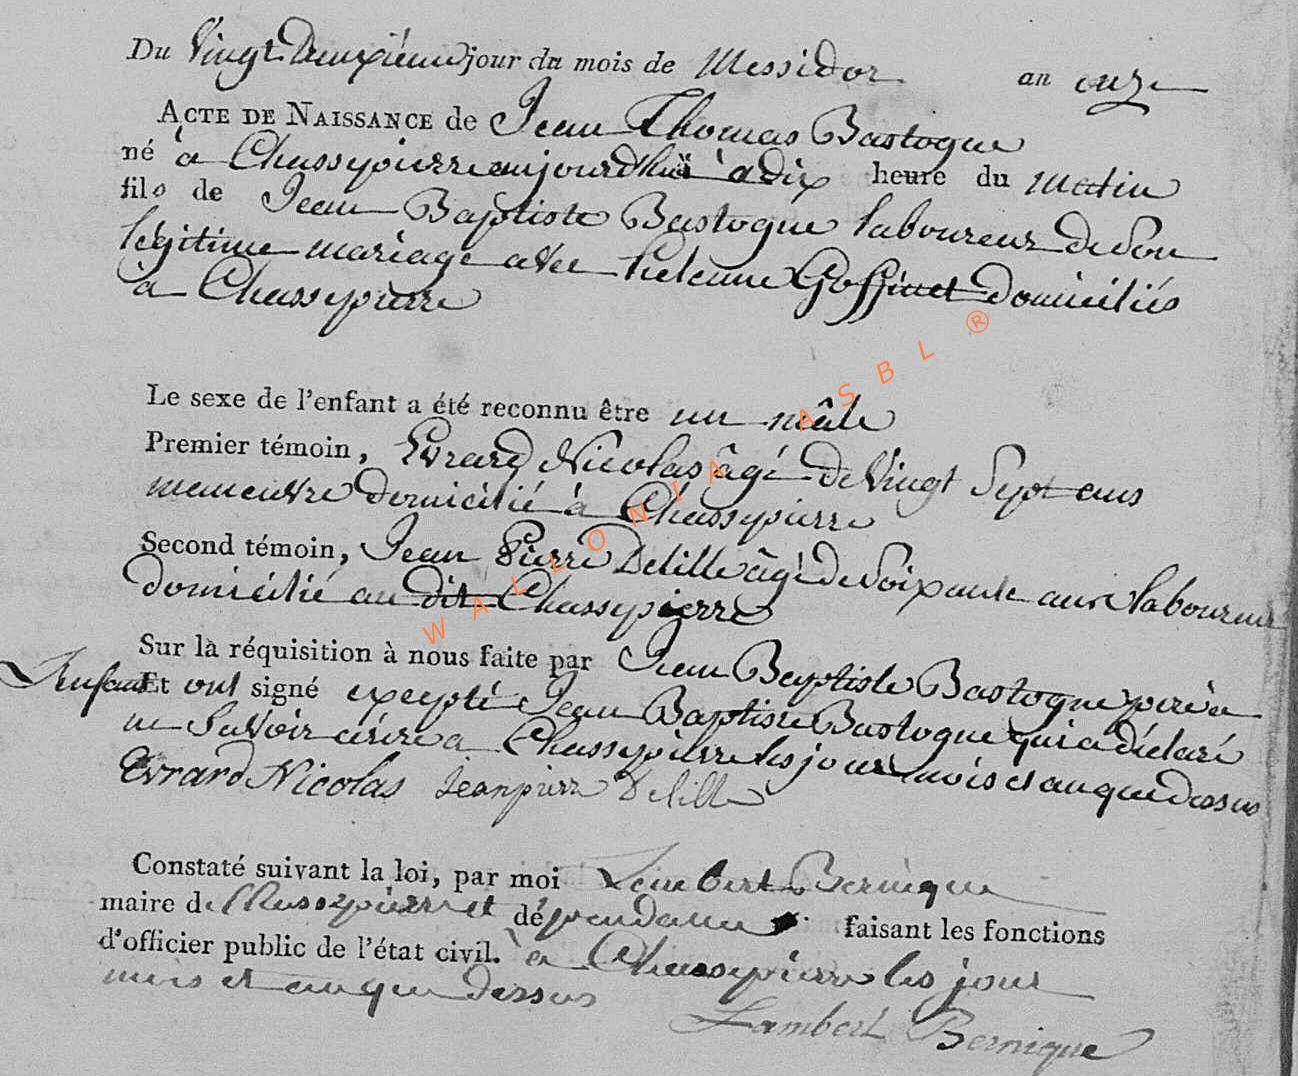 Du Vingt Deuxième jour du mois de Messidor an onze
ACTE DE NAISSANCE de Jean Thomas Bastogne
né à Chassepierre aujourdhui à dix heure du matin
fils de Jean Baptiste Bastogne laboureur de Son
légitime mariage avec helenne Goffinet domiciliés
à Chassepierre
Le sexe de l'enfant a été reconnu être un mâle
Premier témoin, Evrard Nicolas âgé de Vingt Sept ans
maneuvre domicilié à Chassepierre
Second témoin, Jean Pierre Delille âgé de Soixante ans laboureur
domicilié au dit Chassepierre
Sur la réquisition à nous faite par Jean Baptiste Bastogne père à
L'enfant Et ont signé excepté Jean Baptiste Bastogne qui a déclaré
ne Savoir écrire a Chassepierre les jour mois et an que dessus
Evrard Nicolas Jeanpierre Delille
Constaté suivant la loi, par moi Lambert Bernique
maire de Chassepierre et dépendance faisant les fonctions
d'officier public de l'état civil. à Chassepierre les jour
mois et an que dessus
Lambert Bernique
WALLONIA ASBL ®